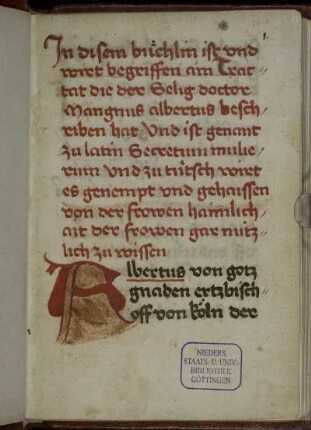 1.
In disem büchlin ist vnd
wiret begriffen ain Trac-
tat die der Selig doctor
Mangnus albertus besch-
riben hat Vnd ist genant
zu latin Secretum mulie-
rum Vnd zu tütsch wirt
es genempt vnd gehaissen
von der frowen haimlich-
ait der frowen gar nutz-
lich zu wissen
Albertus von gotz
gnaden ertzbisch-
off von köln der
NIEDERS.
STAATS- U. UNIV.-
BIBLIOTHEK
GÖTTINGEN